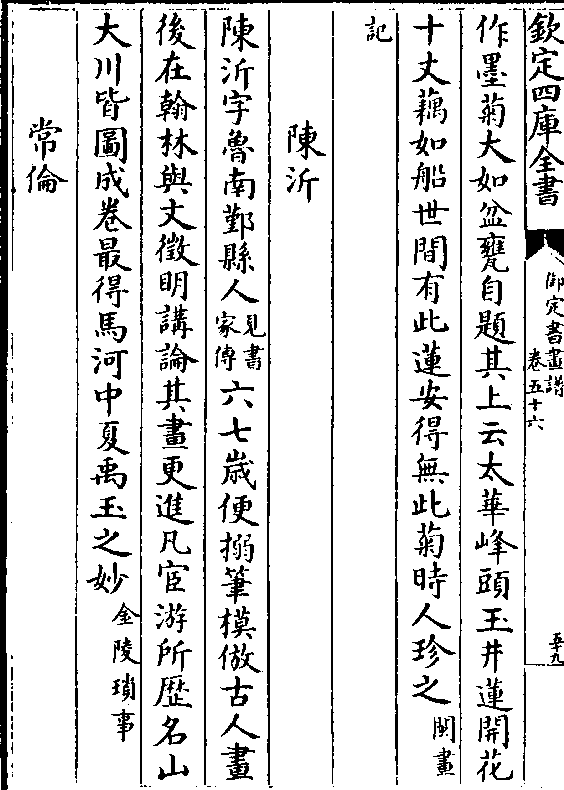 欽定四庫全書
御定書畫譜
卷五十六
五十九
作墨菊大如盆甕自題其上云太華峰頭玉井蓮開花
十丈藕如船世間有此蓮安得無此菊時人珍之閩畫
記
陳沂
陳沂字魯南鄞縣人見書家傳六七歲便搦筆模倣古人畫
後在翰林與文徵明講論其畫更進凡宦游所歴名山
大川皆圖成卷最得馬河中夏禹玉之妙金陵瑣事
常倫